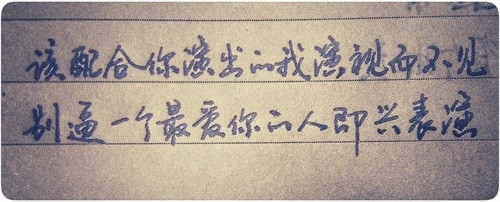 该配合你演出的我演视而不见
别逼一个最爱你的人即兴表演